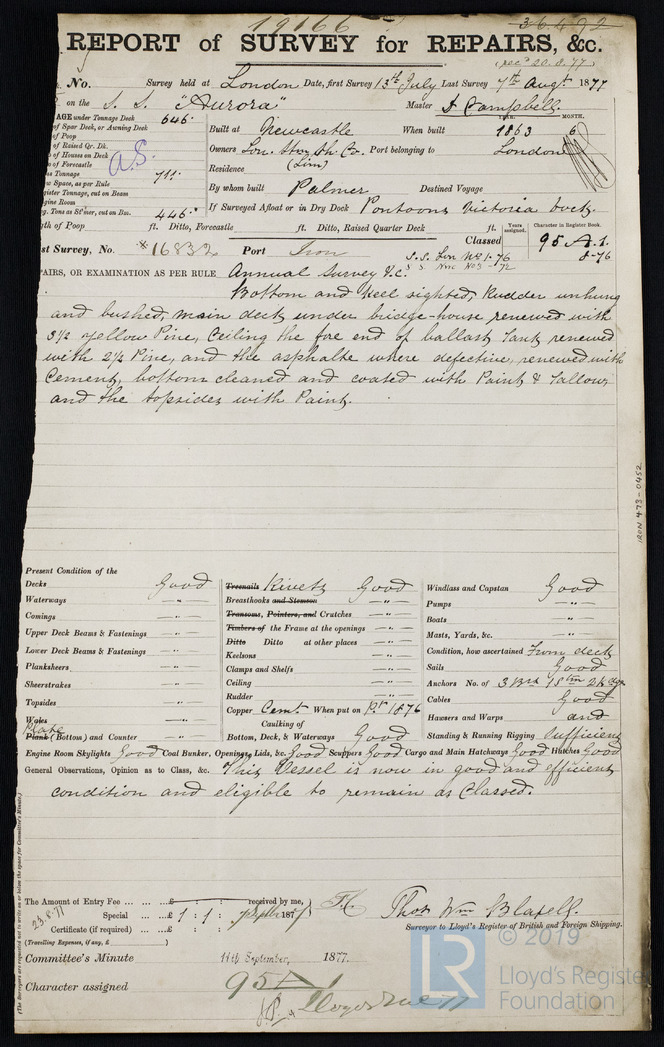 19166
36.492
REPORT of SURVEY for REPAIRS, &c.
rec'd 20.8.77
No. Survey held at London Date, first Survey 13th July Last Survey 7th Augt 1877
on the S. S. "Aurora" Master D Campbell
AGE under Tonnage Deck 646.
of Spar Deck, or Awning Deck
of Poop
of Raised Qr. Dk.
of Houses on Deck
of Forecastle
Tonnage 711
Space, as per Rule
gister Tonnage, cut on Beam
gine Room
g. Tons as St'mer, cut on Bm. 446
A.S.
Built at Newcastle When built 1863 MONTH. 6
Owners Port belonging to London
Residence (Lim)
By whom built Palmer Destined Voyage
If Surveyed Afloat or in Dry Dock Pontoons Victoria Dock.
th of Poop ft. Ditto, Forecastle ft. Ditto, Raised Quarter Deck ft.
Years assigned. Character in Register Book.
Classed 95 A.1.
8-76
st Survey, No. *16832 Port Iron
S.S. Lon No 1-76
S S No3-72
AIRS, OR EXAMINATION AS PER RULE Annual Survey &c.
Bottom and Keel sighted, Rudder unhung
and bushed, main deck under bridge-house renewed with
3½ yellow Pine, Ceiling the fore end of ballast Tank renewed
with 2½ Pine, and the asphalte where defective, renewed with
Cement, bottom cleaned and coated with Paint & Tallow,
and the topsides with Paint.
IRON 473-0452
Present Condition of the
Decks Good
Waterways — " —
Comings — " —
Upper Deck Beams & Fastenings — " —
Lower Deck Beams & Fastenings — " —
Planksheers — " —
Sheerstrakes — " —
Topsides — " —
Wales — " —
Plate
Plank (Bottom) and Counter — " —
Treenails Rivets Good
Breasthooks and Stemson — " —
Transoms, Pointers, and Crutches — " —
Timbers of the Frame at the openings — " —
Ditto Ditto at other places — " —
Keelsons — " —
Clamps and Shelfs — " —
Ceiling — " —
Rudder — " —
Copper Cemt When put on 1876
Caulking of
Bottom, Deck, & Waterways Good
Windlass and Capstan Good
Pumps — " —
Boats — " —
Masts, Yards, &c. — " —
Condition, how ascertained From deck
Sails Good
Anchors No. of 3 Brs 1 Stm 2 Kdgs
Cables Good
Hawsers and Warps and
Standing & Running Rigging Sufficient
Engine Room Skylights Good Coal Bunker, Openings, Lids, &c. Good Scuppers Good Cargo and Main Hatchways Good Hutches Good
General Observations, Opinion as to Class, &c. This Vessel is now in good and efficient
condition and eligible to remain as Classed.
(The Surveyors are requested not to write on or below the space for Committee's Minute.)
The Amount of Entry Fee ... ... ...£ : : received by me,
23.8.77
Special ... ...£ 1 : 1 : 187
Certificate (if required) ... ...£ : :
(Travelling Expenses, if any, £ )
Thos Wm Blaxell.
Surveyor to Lloyd's Register of British and Foreign Shipping.
Committee's Minute 11th September, 1877.
Character assigned 95 A 1
© 2019
LR
Lloyd's Register
Foundation